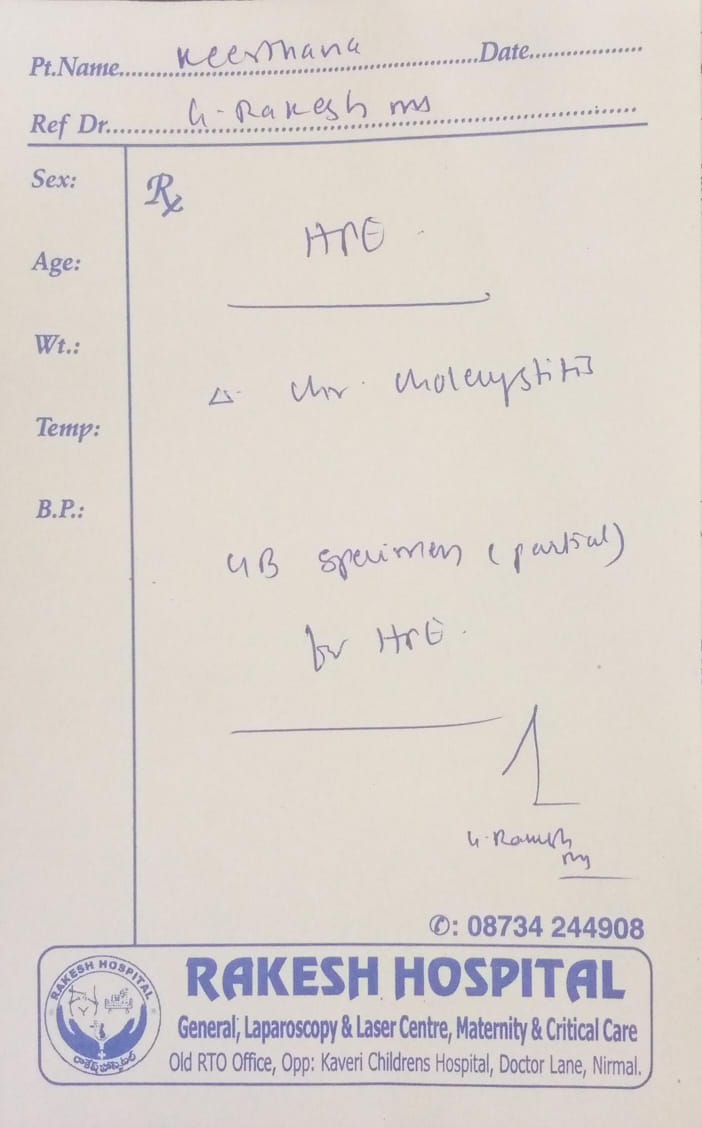 Pt.Name.......Keerthana.......Date.......
Ref Dr.......G. Rakesh MS.......
Sex:
Rx
HPE
Age:
Wt.:
Δ. Chr. Cholecystitis
Temp:
B.P.:
GB specimen (partial)
for HPE.
G. Rakesh
MS
✆: 08734 244908
RAKESH HOSPITAL
RAKESH HOSPITAL
General, Laparoscopy & Laser Centre, Maternity & Critical Care
రాకేష్ హాస్పిటల్
Old RTO Office, Opp: Kaveri Childrens Hospital, Doctor Lane, Nirmal.